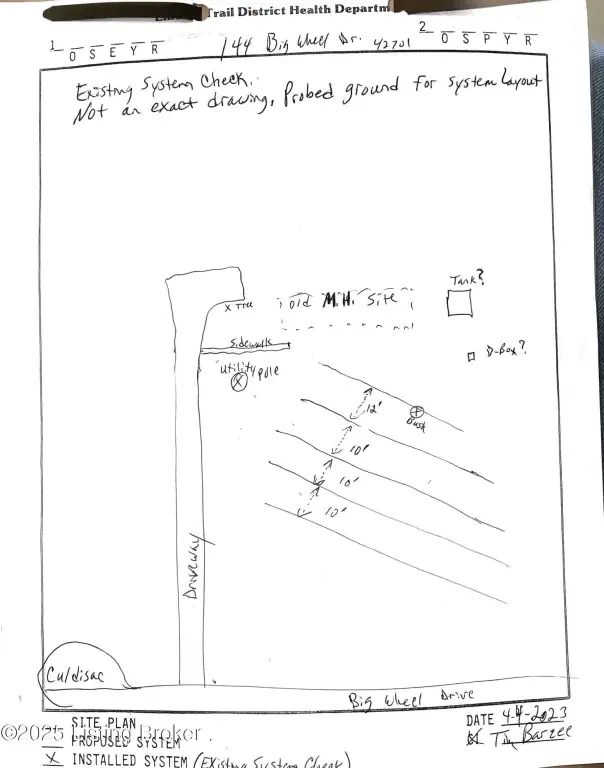 Trail District Health Departm
1 O S E Y R
144 Big Wheel Dr. 42701
2 O S P Y R
Existing System Check.
Not an exact drawing, Probed ground for system Layout
Tank?
X Tree
old M.H. Site
Sidewalk
D-Box?
utility pole
X
12'
Bush
10'
10'
10'
Driveway
Culdisac
Big Wheel Drive
SITE PLAN
PROPOSED SYSTEM
X INSTALLED SYSTEM (Existing System Check)
DATE 4-4-2023
Barzee
©2025 Listing Broker